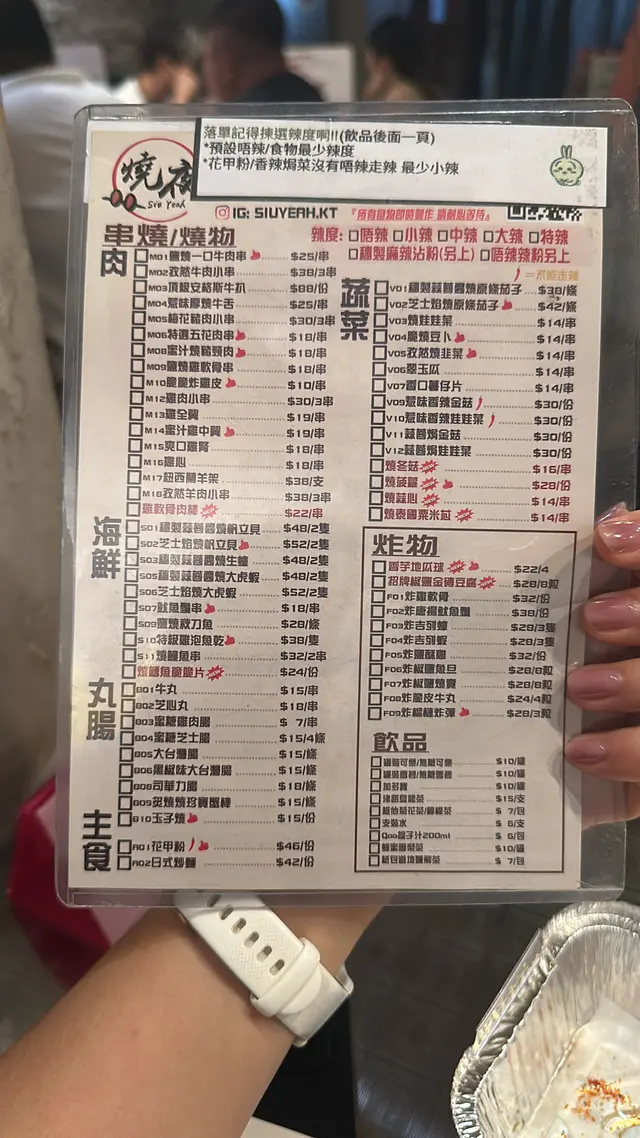 落單記得揀選辣度啊!!(飲品後面一頁)
*預設唔辣/食物最少辣度
*花甲粉/香辣焗菜沒有唔辣走辣 最少小辣
燒夜
Siu Yeah
IG: SIUYEAH.KT
『所有食物即時製作 請耐心等待』
串燒/燒物
辣度: 唔辣 小辣 中辣 大辣 特辣
秘製麻辣沾粉(另上) 唔辣辣粉另上
=不能走辣
肉
M01鹽燒一口牛肉串 $25/串
M02孜然牛肉小串 $38/3串
M03頂級安格斯牛扒 $88/份
M04惹味厚燒牛舌 $25/串
M05梅花豬肉小串 $30/3串
M06特選五花肉串 $18/串
M08蜜汁燒豬頸肉 $18/串
M09鹽燒雞軟骨串 $18/串
M10脆脆炸雞皮 $10/串
M12雞肉小串 $30/3串
M13雞全翼 $19/串
M14蜜汁雞中翼 $19/串
M15爽口雞腎 $18/串
M16雞心 $18/串
M17紐西蘭羊架 $38/支
M18孜然羊肉小串 $38/3串
雞軟骨肉棒 $22/串
海鮮
S01秘製蒜蓉醬燒帆立貝 $48/2隻
S02芝士焰燒帆立貝 $52/2隻
S03秘製蒜蓉醬燒生蠔 $48/2隻
S05秘製蒜蓉醬燒大虎蝦 $48/2隻
S06芝士焰燒大虎蝦 $52/2隻
S07魷魚鬚串 $18/串
S09鹽燒秋刀魚 $28/條
S10特級雞泡魚乾 $38/隻
S11燒鰻魚串 $32/2串
燒鱈魚脆脆片 $24/份
丸腸
B01牛丸 $15/串
B02芝心丸 $18/串
B03蜜糖雞肉腸 $ 7/串
B04蜜糖芝士腸 $15/4條
B05大台灣腸 $15/條
B06黑椒味大台灣腸 $15/條
B08司華力腸 $18/條
B09炙燒燒珍寶蟹棒 $15/條
B10玉子燒 $15/份
主食
A01花甲粉 $46/份
A02日式炒麵 $42/份
蔬菜
V01秘製蒜蓉醬燒原條茄子 $38/條
V02芝士焰燒原條茄子 $42/條
V03燒娃娃菜 $14/串
V04脆燒豆卜 $14/串
V05孜然燒韭菜 $14/串
V06翠玉瓜 $14/串
V07香口薯仔片 $14/串
V09惹味香辣金菇 $30/份
V10惹味香辣娃娃菜 $30/份
V11蒜蓉焗金菇 $30/份
V12蒜蓉焗娃娃菜 $30/份
燒冬菇 $16/串
燒菠蘿 $28/份
燒蒜心 $14/串
燒泰國粟米芯 $14/串
炸物
香芋地瓜球 $22/4
招牌椒鹽金磚豆腐 $28/8粒
F01炸雞軟骨 $32/份
F02炸唐揚魷魚鬚 $38/份
F03炸吉列蠔 $28/3隻
F04炸吉列蝦 $28/3隻
F05炸鹽酥雞 $32/份
F06炸椒鹽魚旦 $28/8粒
F07炸椒鹽燒賣 $28/8粒
F08炸脆皮牛丸 $24/4粒
F09炸榴槤炸彈 $28/3粒
飲品
罐裝可樂/無糖可樂 $10/罐
罐裝雪碧/無糖雪碧 $10/罐
加多寶 $10/罐
津路烏龍茶 $15/支
維他菊花茶/檸檬茶 $ 7/包
支裝水 $ 6/支
Qoo提子汁200ml $ 6/包
$10/罐
$ 7/包